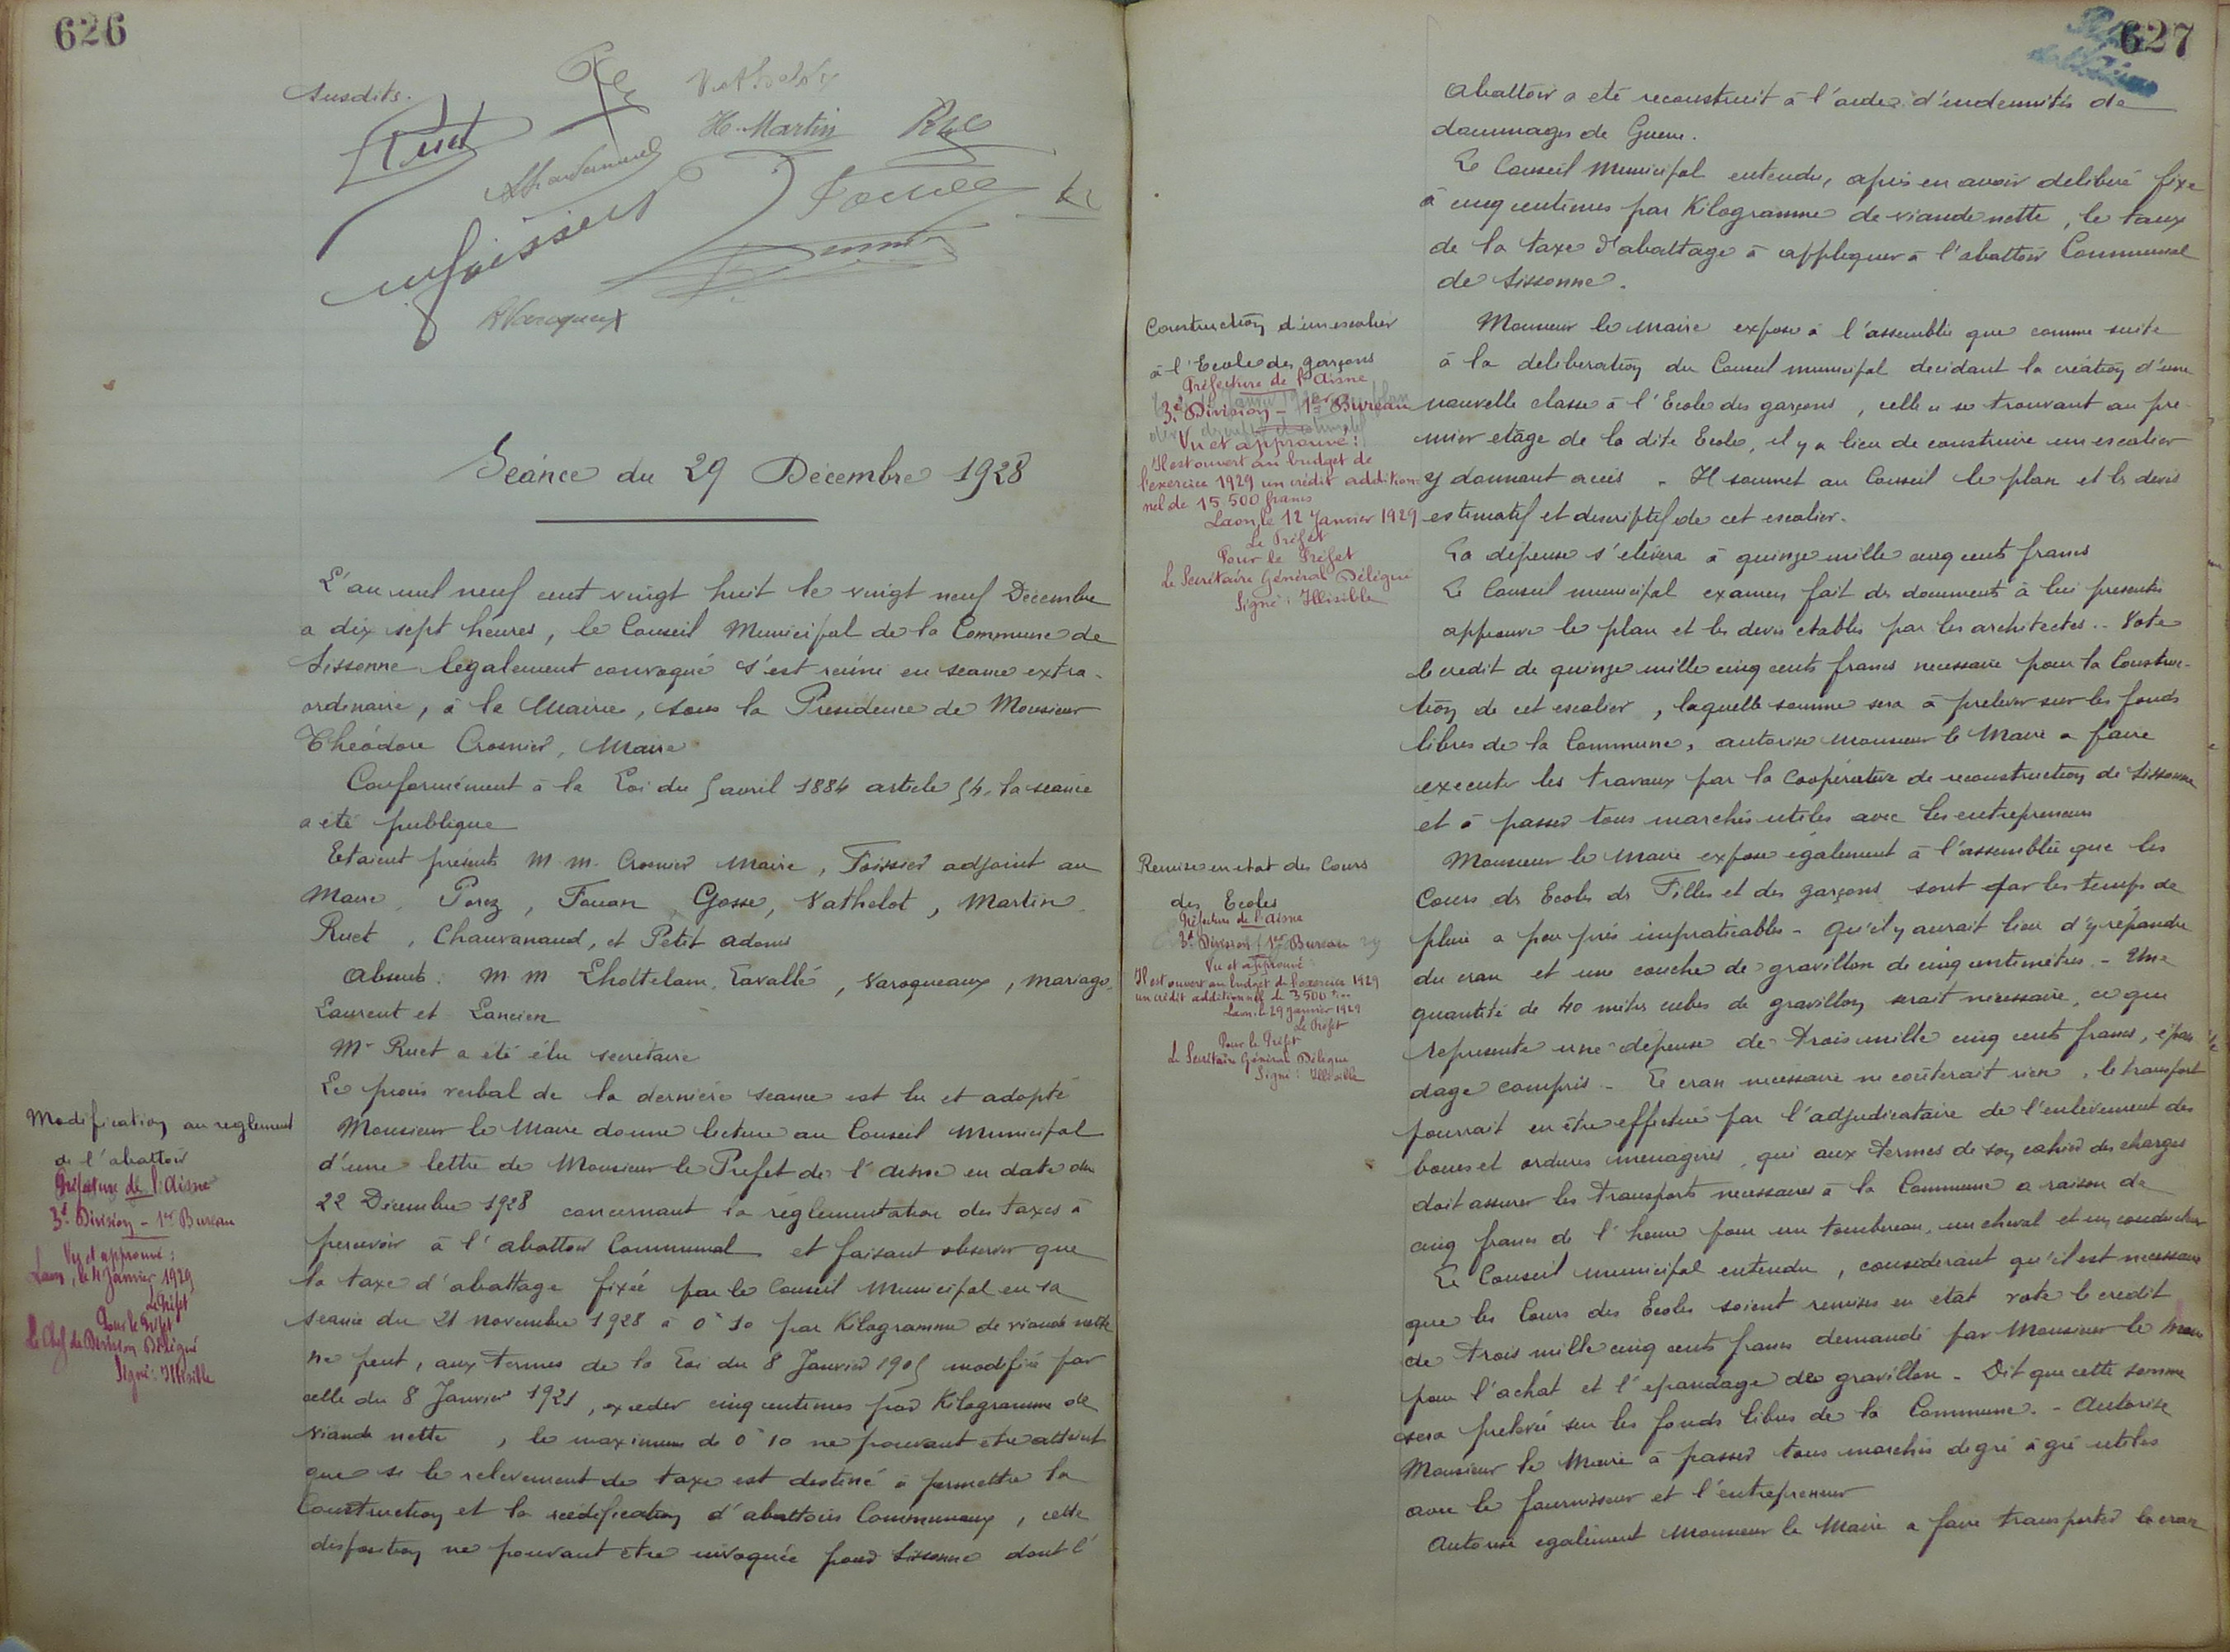 626
susdits.
H. Martin
Séance du 29 Décembre 1928
L'an mil neuf cent vingt huit le vingt neuf Décembre
a dix sept heures, le Conseil Municipal de la Commune de
Sissonne legalement convoqué s'est réuni en seance extra-
ordinaire, à la Mairie, sous la Presidence de Monsieur
Théodore Crosnier, Maire
Conformément à la Loi du 5 avril 1884 article 54, la séance
a été publique
Etaient présents M.M. Crosnier Maire, Foissier adjoint au
Maire, Porez, Fouan, Gosse, Vathelot, Martin
Ruet, Chauvanaud, et Petit adonis
Absents: M M Lhottelain, Lavallé, Varoqueaux, Mariage,
Laurent et Lancien
Mr Ruet a été élu secretaire
Le procès verbal de la dernière seance est lu et adopté
Modification au reglement
de l'abattoir
Préfecture de l'Aisne
3e Division - 1er Bureau
Vu et approuvé:
Laon, le 4 Janvier 1929
Le Préfet
Pour le Préfet
Le Chef de Division Délégué
Signé: Illisible
Monsieur le Maire donne lecture au Conseil Municipal
d'une lettre de Monsieur le Prefet de l'Aisne en date du
22 Décembre 1928 concernant la réglementation des taxes à
percevoir à l'abattoir Communal et faisant observer que
la taxe d'abattage fixée par le Conseil Municipal en sa
seance du 21 novembre 1928 à 0f10 par Kilogramme de viande nette
ne peut, aux termes de la Loi du 8 Janvier 1905 modifié par
celle du 8 Janvier 1921, exceder cinq centimes par Kilogramme de
viande nette, le maximum de 0f10 ne pouvant être atteint
que si le relevement de taxe est destiné à permettre la
Construction et la réédification d'abattoirs Communaux, cette
disposition ne pouvant être invoquée pour Sissonne dont l'
627
abattoir a été reconstruit à l'aide d'indemnités de
dommages de Guerre.
Le Conseil Municipal entendu, après en avoir deliberé fixe
à cinq centimes par Kilogramme de viande nette, le taux
de la taxe d'abattage à appliquer à l'abattoir Communal
de Sissonne.
Construction d'un escalier
à l'Ecole des garçons
Préfecture de l'Aisne
3e Division - 1er Bureau
Vu et approuvé:
Il est ouvert au budget de
l'exercice 1929 un crédit addition-
nel de 15 500 francs
Laon, le 12 Janvier 1929
Le Préfet
Pour le Préfet
Le Secrétaire Général Délégué
Signé: Illisible
Monsieur le Maire expose à l'assemblée que comme suite
à la deliberation du Conseil municipal decidant la création d'une
nouvelle classe à l'Ecole des garçons, celle ci se trouvant au pre-
mier etage de la dite Ecole, il y a lieu de construire un escalier
y donnant accès - Il soumet au Conseil le plan et le devis
estimatif et descriptif de cet escalier.
La dépense s'elèvera à quinze mille cinq cents francs
Le Conseil municipal examen fait des documents à lui presentés
approuve le plan et les devis etablis par les architectes - Vote
le credit de quinze mille cinq cents francs necessaire pour la Construc-
tion de cet escalier, laquelle somme sera à prelever sur les fonds
libres de la Commune, autorise Monsieur le Maire a faire
executer les travaux par la Coopérative de reconstruction de Sissonne
et à passer tous marchés utiles avec les entrepreneurs
Remise en etat des Cours
des Ecoles
Préfecture de l'Aisne
3e Division 1er Bureau
Vu et approuvé
Il est ouvert au budget de l'exercice 1929
un crédit additionnel de 3500
Laon, le 29 Janvier 1929
Le Préfet
Pour le Préfet
Le Secrétaire Général Délégué
Signé: Illisible
Monsieur le Maire expose également à l'assemblée que les
Cours des Ecoles de Filles et des garçons sont par les temps de
pluie a peu près impraticables - Qu'il y aurait lieu d'y répandre
du cran et une couche de gravillon de cinq centimètres - Une
quantité de 40 mètres cubes de gravillon serait nécessaire, ce qui
represente une dépense de trois mille cinq cents francs, épan-
dage compris - Le cran necessaire ne coûterait rien, le transport
pourrait en être effectué par l'adjudicataire de l'enlèvement des
boues et ordures menageres, qui aux termes de son cahier des charges
doit assurer les transports necessaires à la Commune a raison de
cinq francs de l'heure pour un tombereau, un cheval et un conducteur
Le Conseil municipal entendu, considerant qu'il est necessaire
que les Cours des Ecoles soient remises en état vote le credit
de trois mille cinq cents francs demandé par Monsieur le Maire
pour l'achat et l'epandage de gravillon - Dit que cette somme
sera prelevée sur les fonds libres de la Commune. - Autorise
Monsieur le Maire à passer tous marchés de gré à gré utiles
avec le fournisseur et l'entrepreneur
Autorise egalement Monsieur le Maire a faire transporter le cran